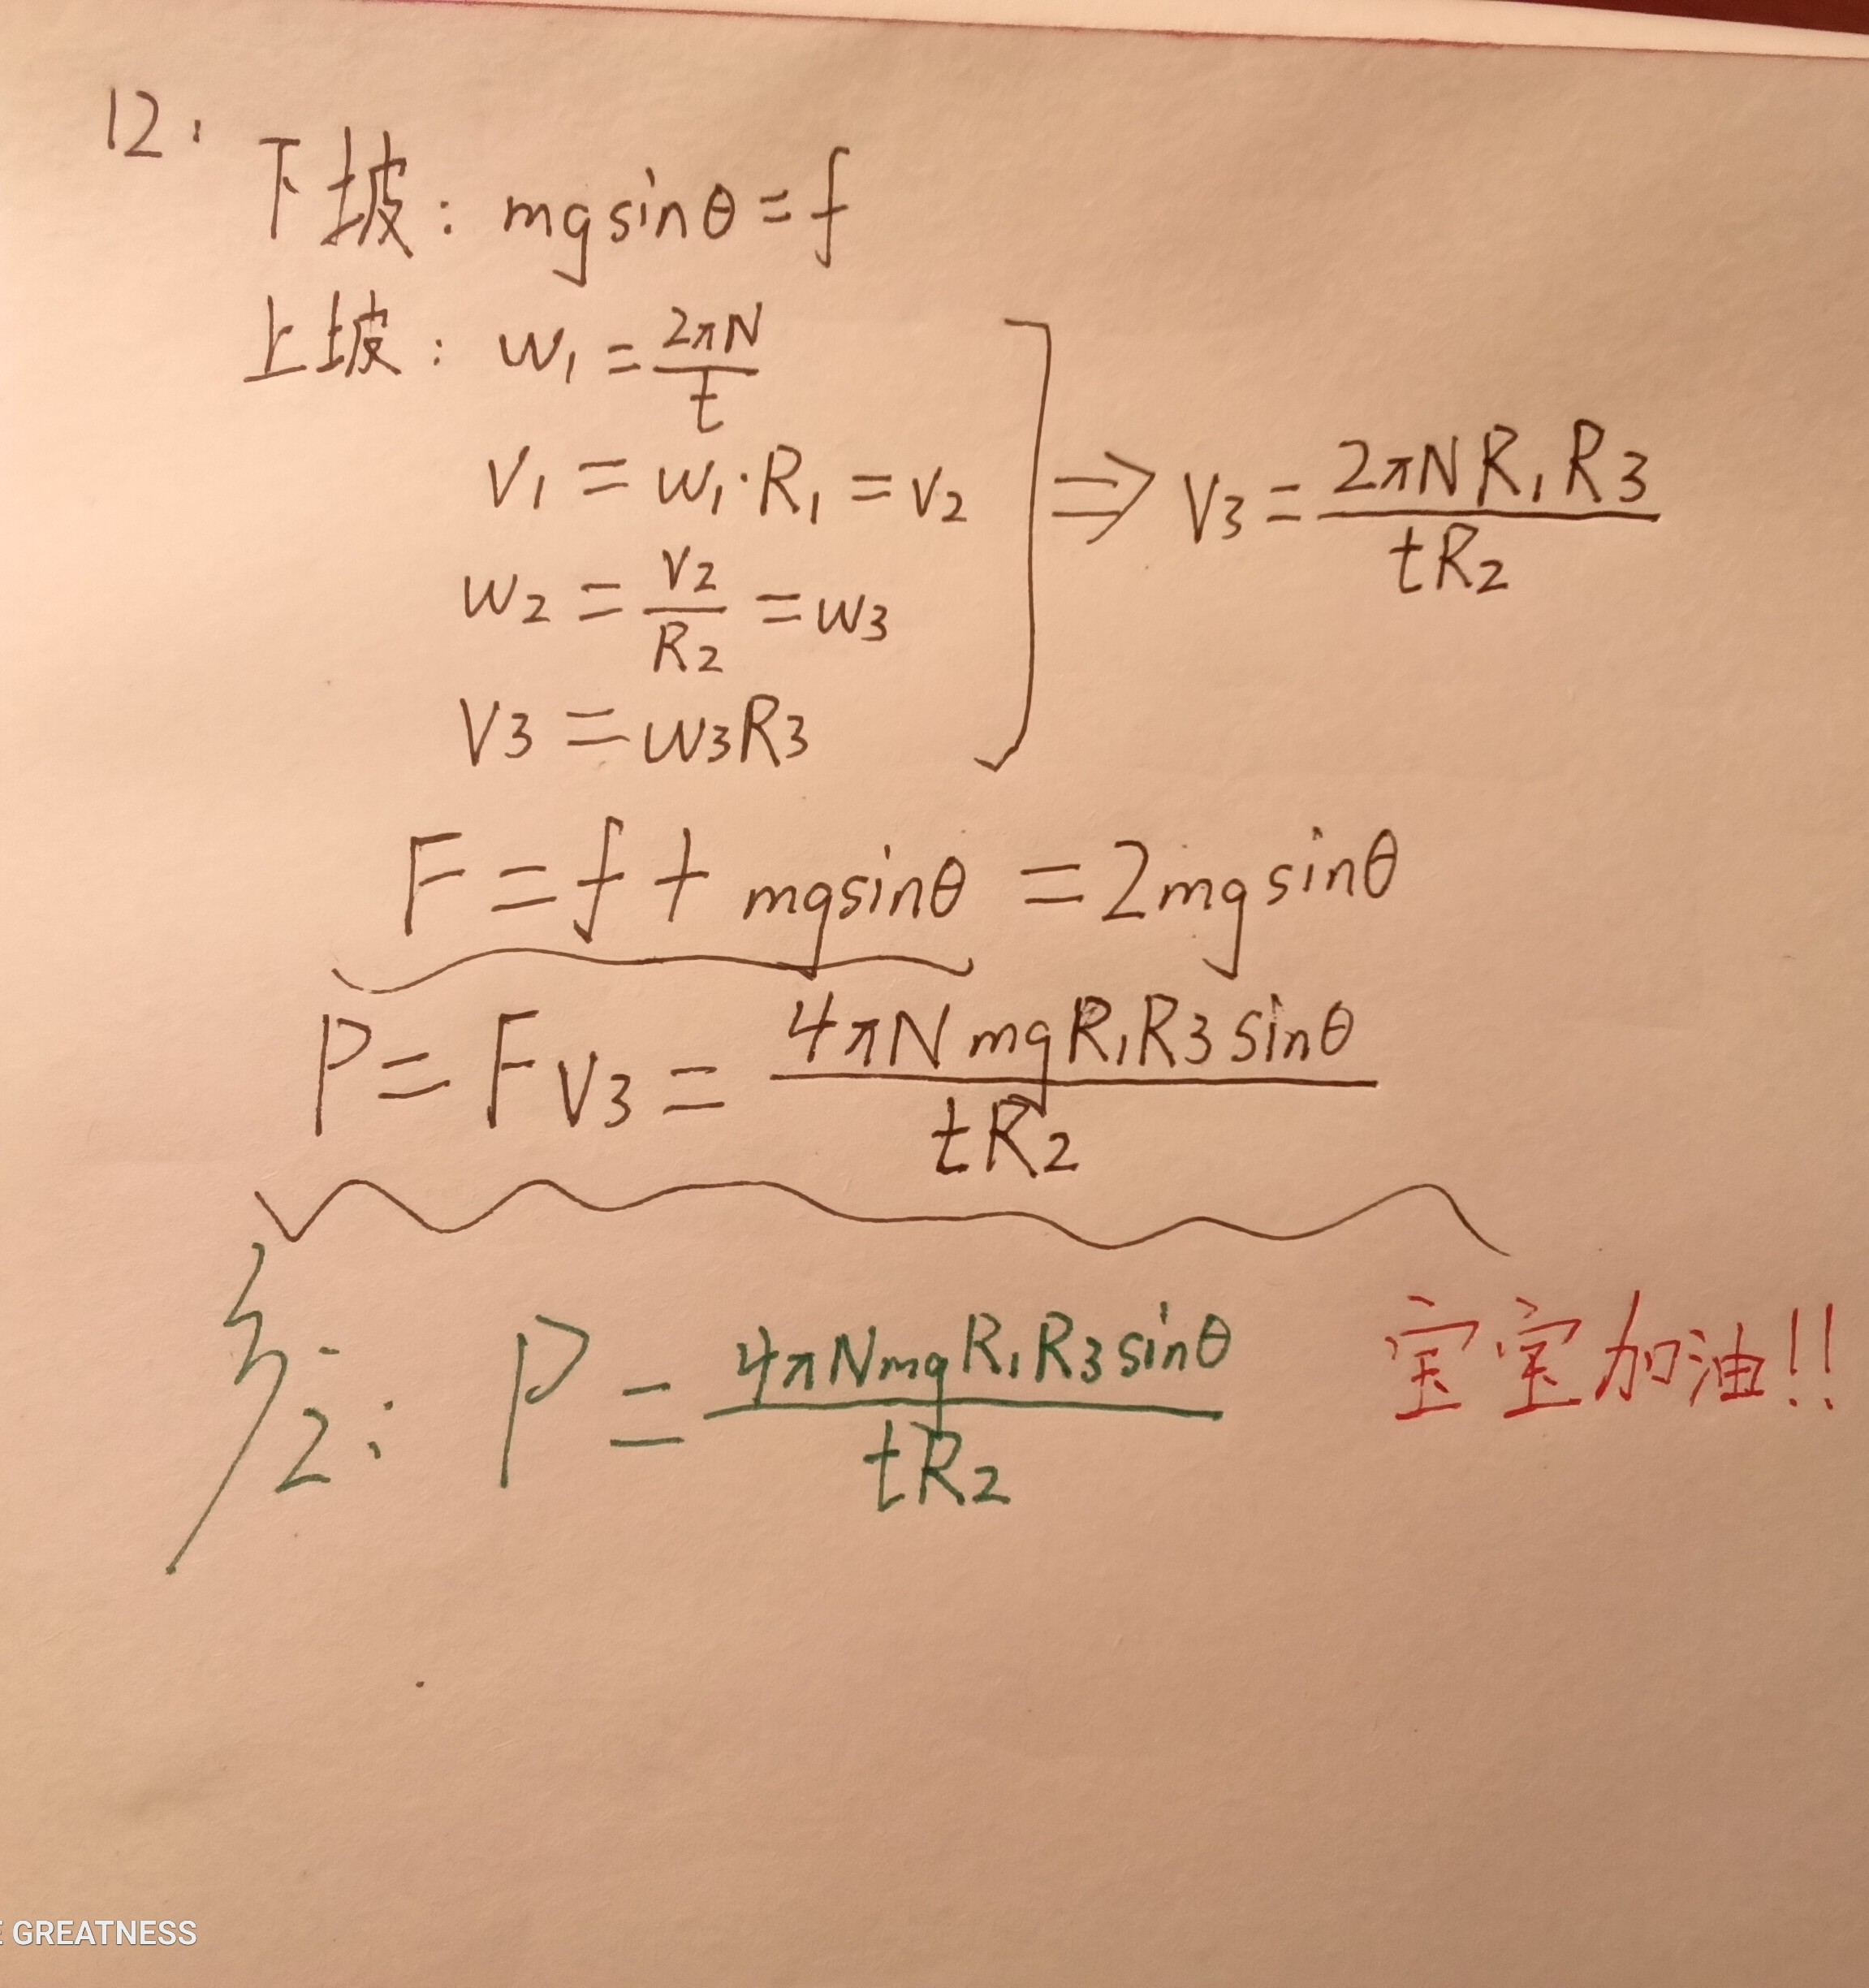 12:
下坡: mgsinθ=f
上坡: w₁ = 2πN/t
v₁ = w₁·R₁ = v₂
w₂ = v₂/R₂ = w₃
v₃ = w₃R₃
⇒ v₃ = 2πNR₁R₃/tR₂
F = f + mgsinθ = 2mgsinθ
P = Fv₃ = 4πNmgR₁R₃sinθ/tR₂
2: P = 4πNmgR₁R₃sinθ/tR₂
宝宝加油!!
GREATNESS